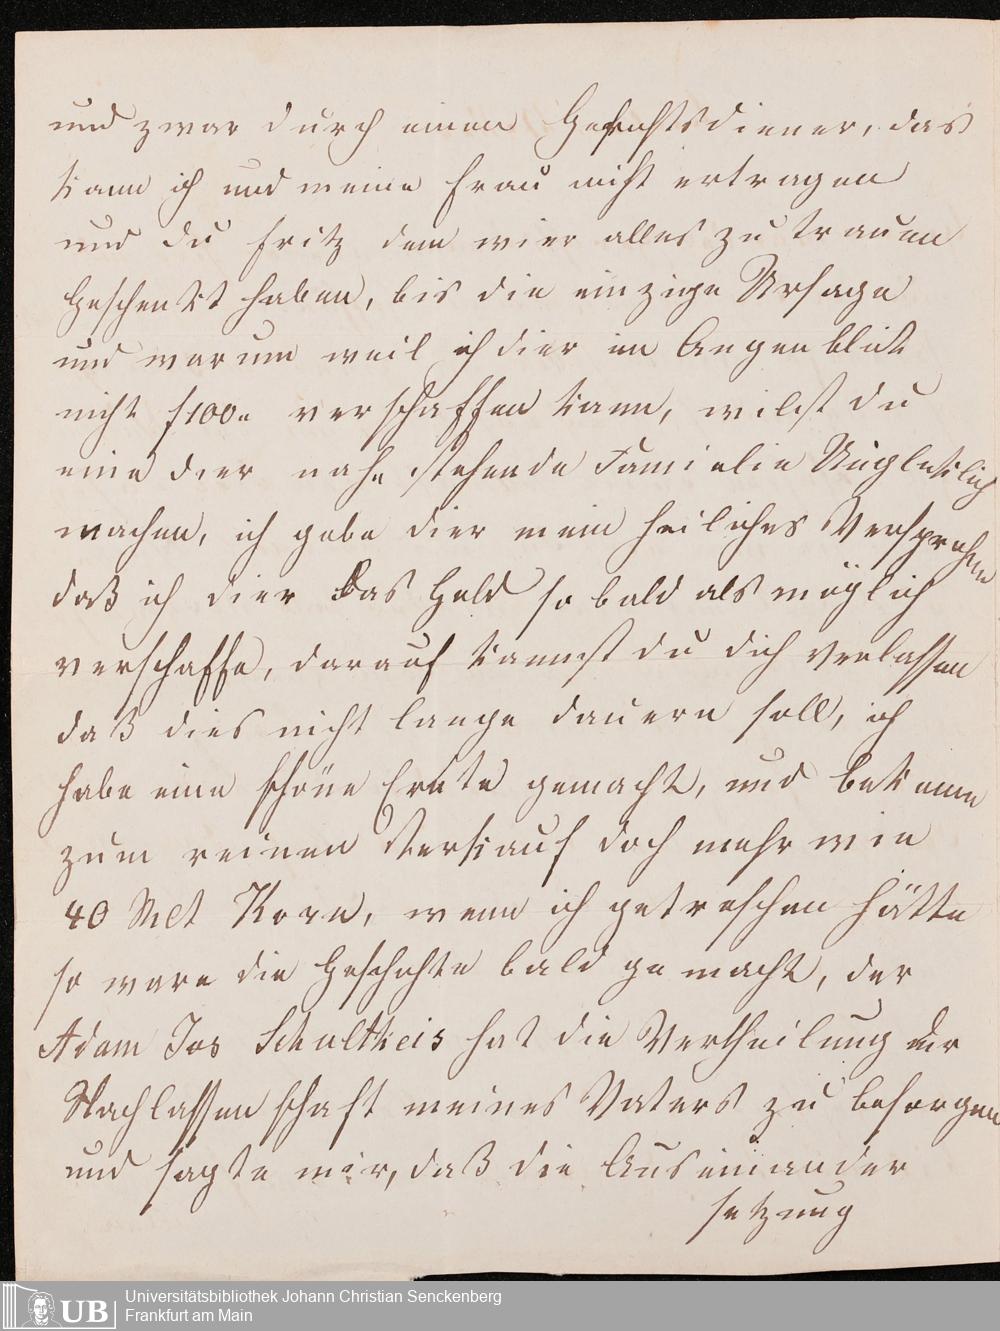 und zwar durch einen Gerichtsdiener, das
kann ich und meine Frau nicht ertragen
und du Fritz dem wier alles zu trauen
Geschenkt haben, bis die einzige Ursage
und warum weil ich dier im Augenblick
nicht f100„ verschaffen kann, wilst du
eine dier nahe stehende Familie Unglüklich
machen, ich gebe dier mein heiliches Versprechen
daß ich dier das Geld so bald als möglich
verschaffe, darauf kannst du dich verlassen
daß dies nicht lange dauern soll, ich
habe eine schöne Ernte gemacht, und bekomme
zum reinen Verkauf doch mehr wie
40 Mlt Korn, wenn ich getroschen hätte
so ware die Geschichte bald ge macht, der
Adam Jos Schultheis hat die Vertheilung der
Nachlassenschaft meines Vaters zu besorgen
und sagte mir, daß die Auseinander
setzung
Universitätsbibliothek Johann Christian Senckenberg
Frankfurt am Main
UB